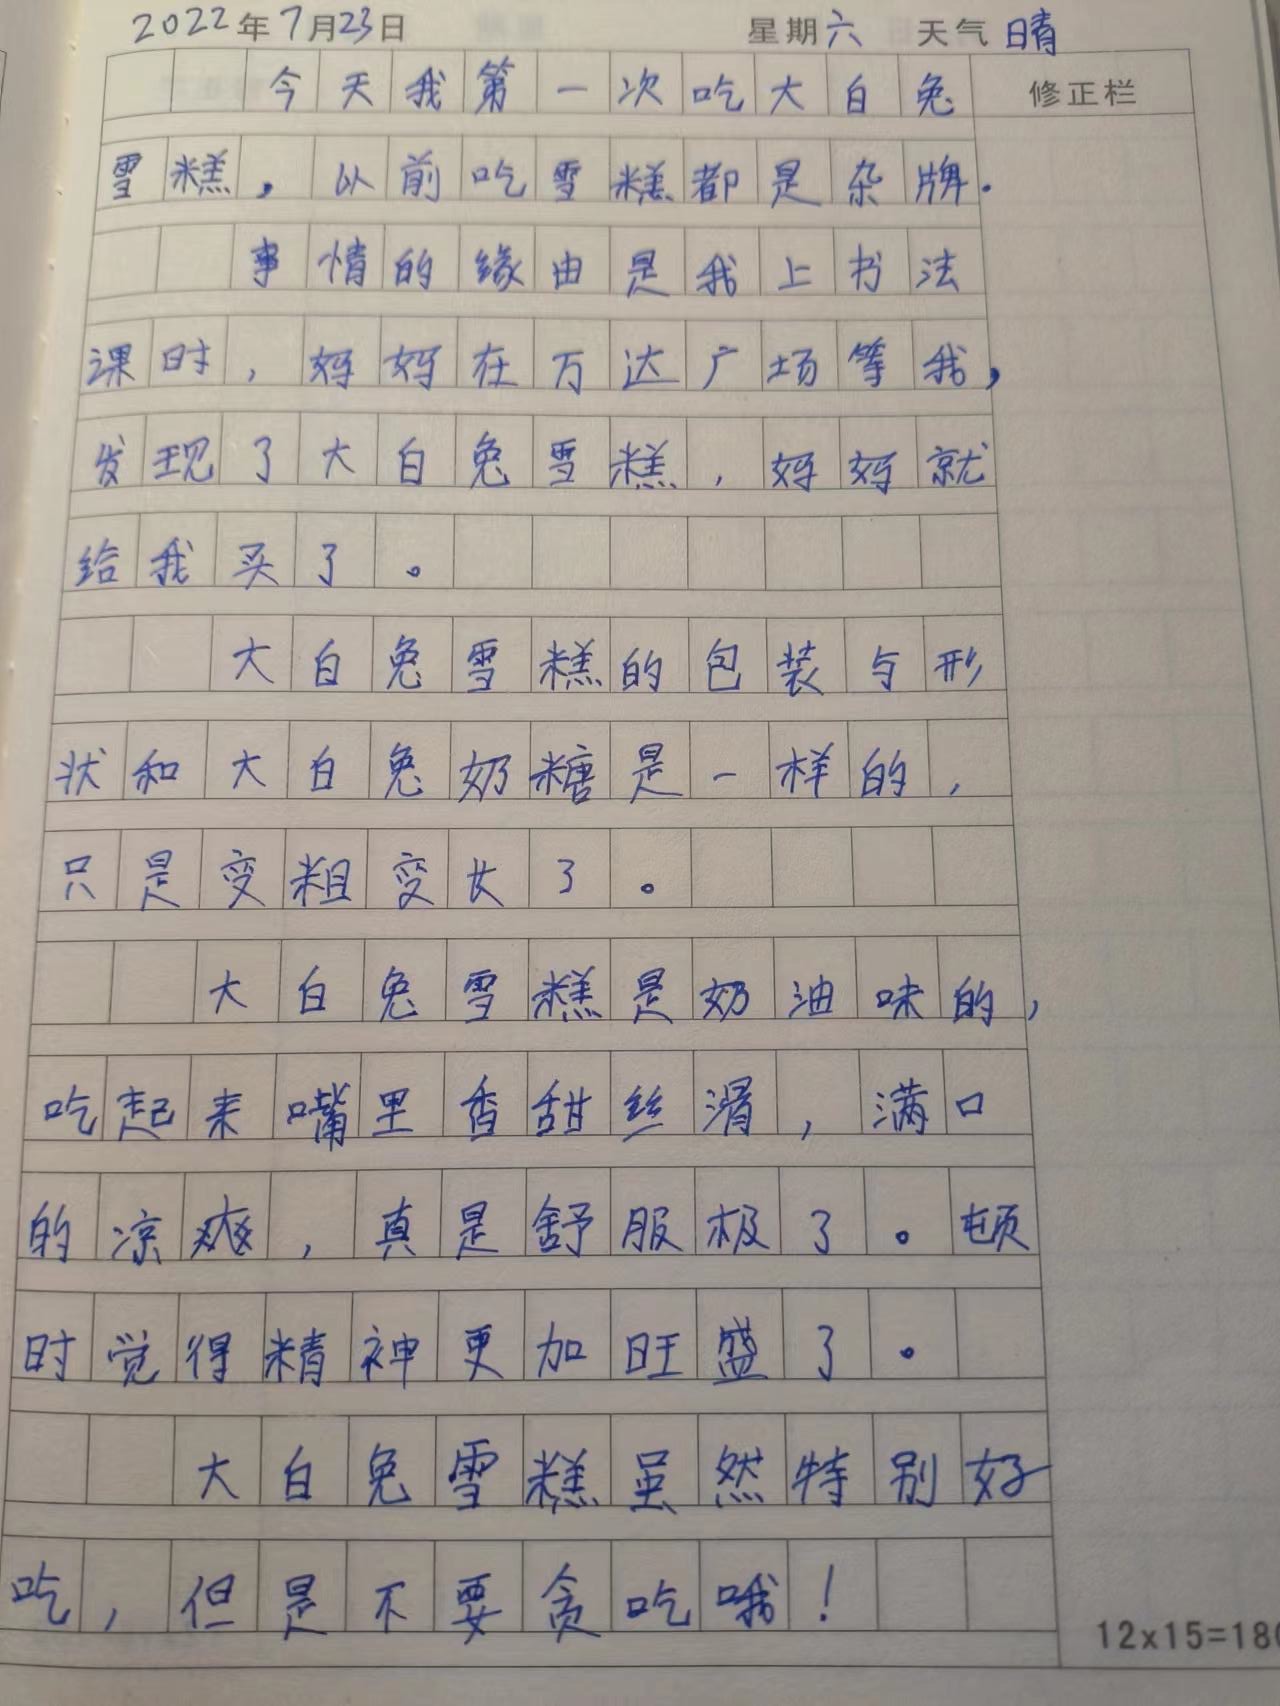 2022年7月23日 星期六 天气晴
今天我第一次吃大白兔 修正栏
雪糕，以前吃雪糕都是杂牌.
事情的缘由是我上书法
课时，妈妈在万达广场等我，
发现了大白兔雪糕，妈妈就
给我买了。
大白兔雪糕的包装与形
状和大白兔奶糖是一样的，
只是变粗变大了。
大白兔雪糕是奶油味的，
吃起来嘴里香甜丝滑，满口
的凉爽，真是舒服极了。顿
时觉得精神更加旺盛了。
大白兔雪糕虽然特别好
吃，但是不要贪吃哦！
12x15=180